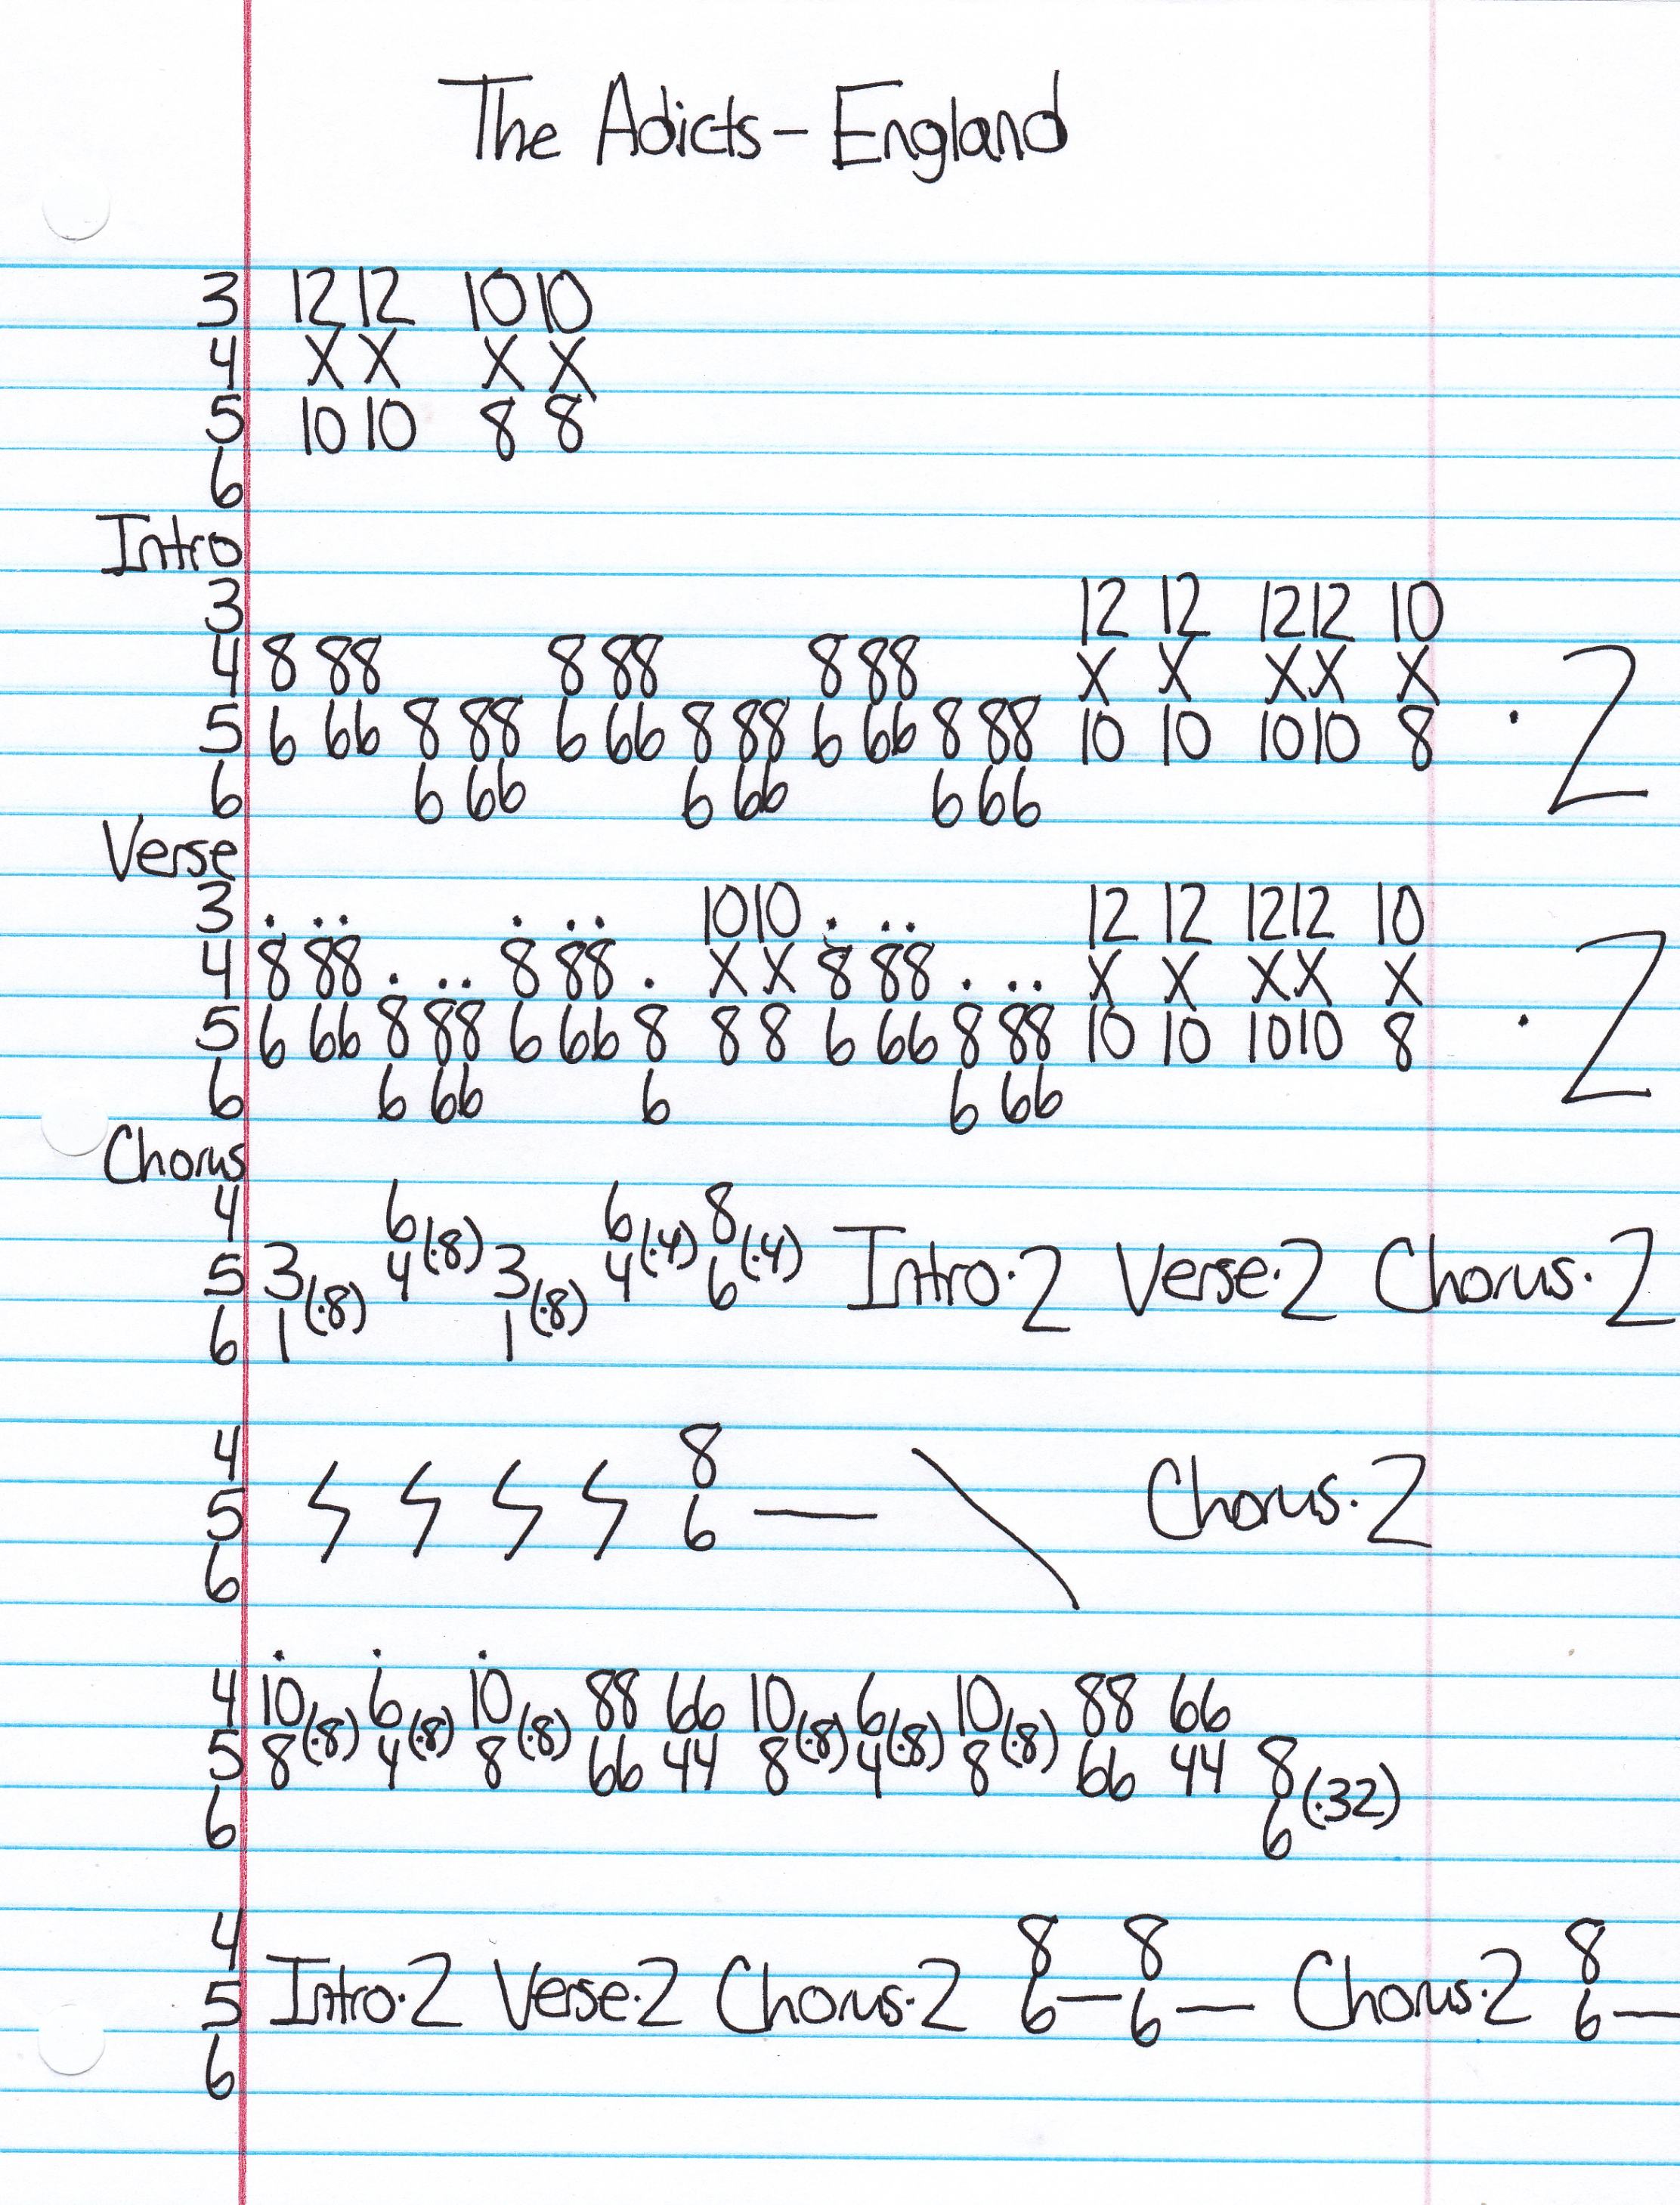 The Adicts - England
3 12 12 10 10
4 X X X X
5 10 10 8 8
6
Intro
3 12 12 12 12 10
4 8 88 8 88 8 88 X X X X X · 2
5 6 66 8 88 6 66 8 88 6 66 8 88 10 10 10 10 8
6 6 66 6 66 6 66
Verse
3 . .. . .. 10 10 . .. 12 12 12 12 10
4 8 88 . .. 8 88 . X X 8 88 . .. X X X X X · 2
5 6 66 8 88 6 66 8 8 8 6 66 8 88 10 10 10 10 8
6 6 66 6 6 66
Chorus
4 6 (·8) 6 (·4) 8 (·4)
5 3 (·8) 4 3 (·8) 4 6 Intro·2 Verse·2 Chorus·2
6 1 1
4 8
5 6 — \ Chorus·2
6
. . .
4 10 (·8) 6 (·8) 10 (·8) 88 66 10 (·8) 6 (·8) 10 (·8) 88 66
5 8 4 8 66 44 8 4 8 66 44 8 (·32)
6 6
4 8 8 8
5 Intro·2 Verse·2 Chorus·2 6 — 6 — Chorus·2 6 —
6